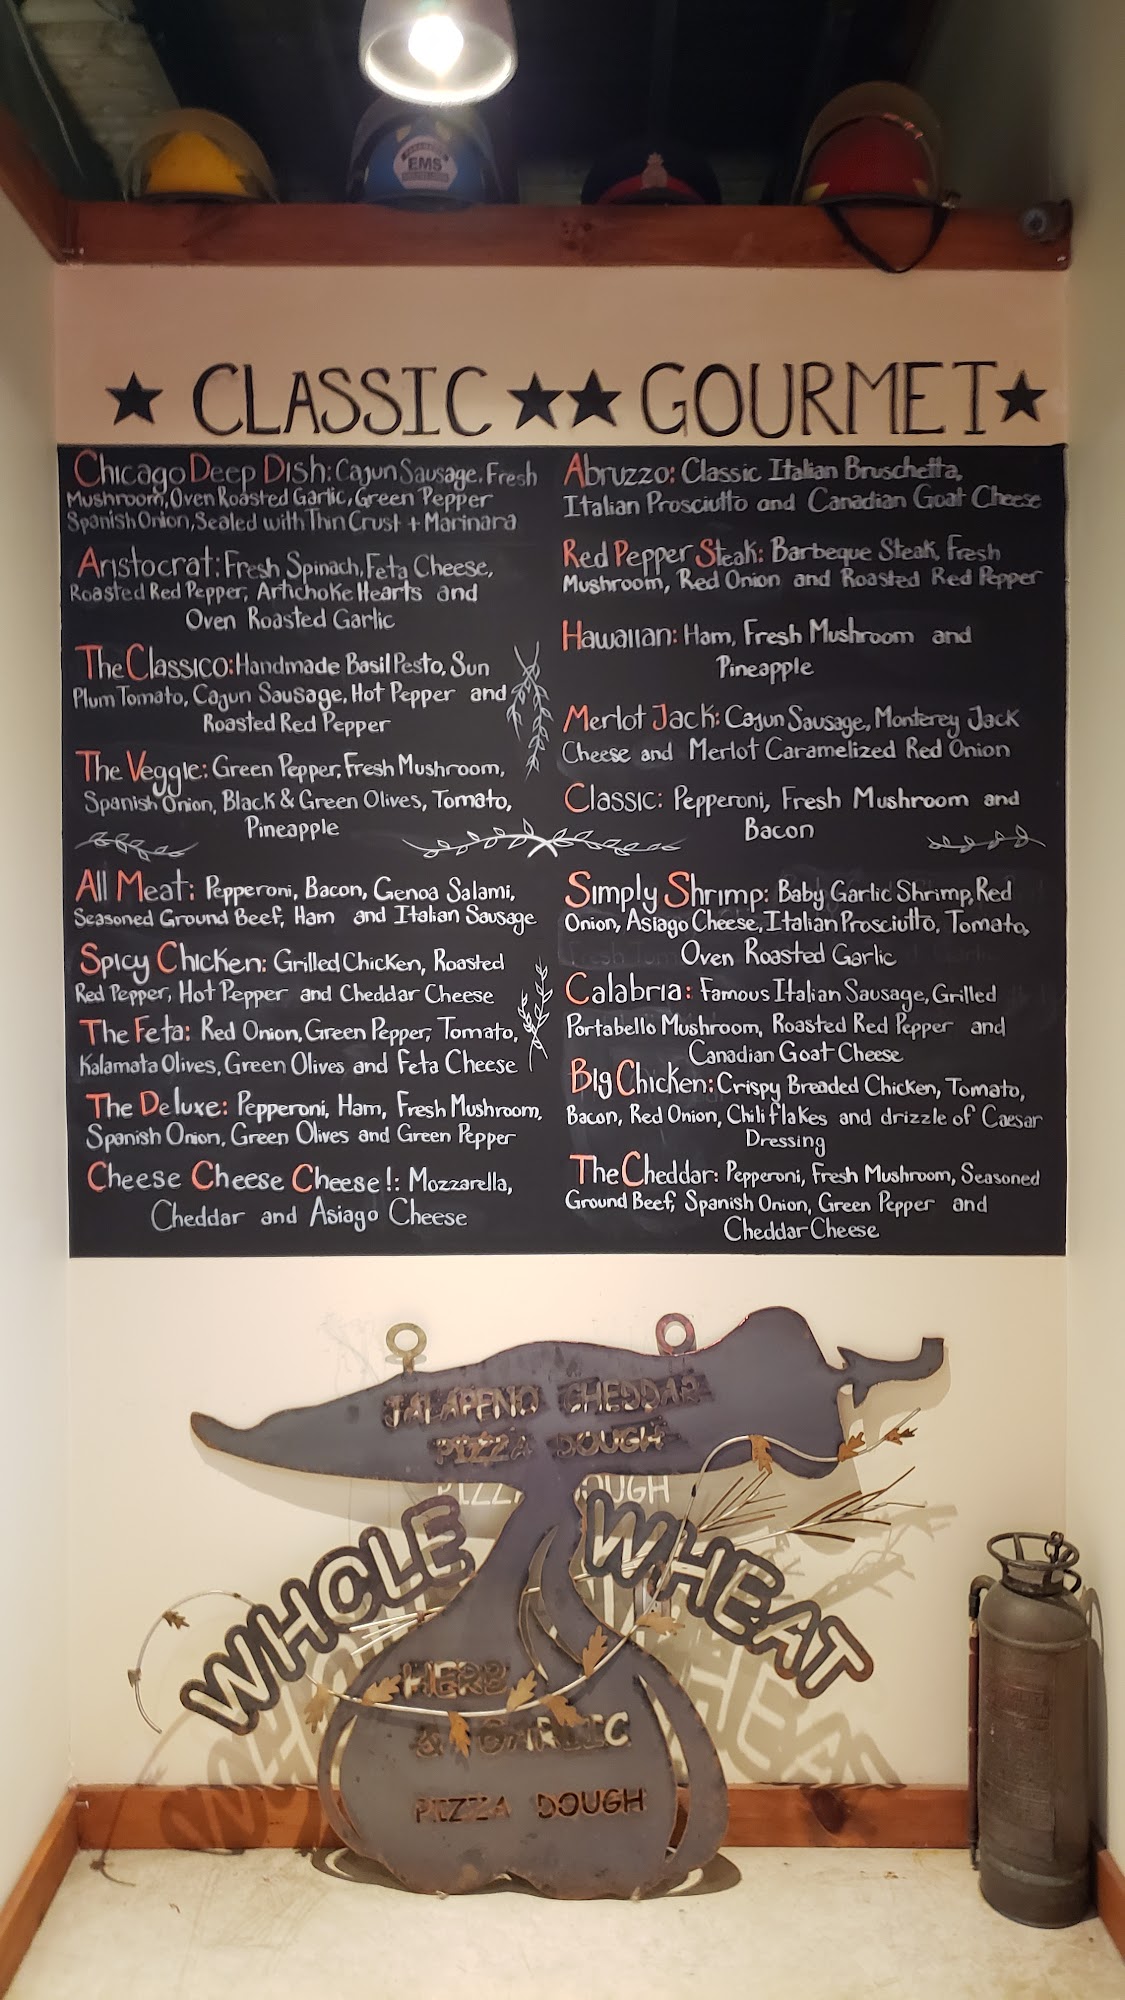 EMS
★ CLASSIC ★★ GOURMET ★
Chicago Deep Dish: Cajun Sausage, Fresh
Mushroom, Oven Roasted Garlic, Green Pepper
Spanish Onion, Sealed with Thin Crust + Marinara
Aristocrat: Fresh Spinach, Feta Cheese,
Roasted Red Pepper, Artichoke Hearts and
Oven Roasted Garlic
The Classico: Handmade Basil Pesto, Sun
Plum Tomato, Cajun Sausage, Hot Pepper and
Roasted Red Pepper
The Veggie: Green Pepper, Fresh Mushroom,
Spanish Onion, Black & Green Olives, Tomato,
Pineapple
All Meat: Pepperoni, Bacon, Genoa Salami,
Seasoned Ground Beef, Ham and Italian Sausage
Spicy Chicken: Grilled Chicken, Roasted
Red Pepper, Hot Pepper and Cheddar Cheese
The Feta: Red Onion, Green Pepper, Tomato,
Kalamata Olives, Green Olives and Feta Cheese
The Deluxe: Pepperoni, Ham, Fresh Mushroom,
Spanish Onion, Green Olives and Green Pepper
Cheese Cheese Cheese!: Mozzarella,
Cheddar and Asiago Cheese
Abruzzo: Classic Italian Bruschetta,
Italian Prosciutto and Canadian Goat Cheese
Red Pepper Steak: Barbeque Steak, Fresh
Mushroom, Red Onion and Roasted Red Pepper
Hawaiian: Ham, Fresh Mushroom and
Pineapple
Merlot Jack: Cajun Sausage, Monterey Jack
Cheese and Merlot Caramelized Red Onion
Classic: Pepperoni, Fresh Mushroom and
Bacon
Simply Shrimp: Baby Garlic Shrimp, Red
Onion, Asiago Cheese, Italian Prosciutto, Tomato,
Oven Roasted Garlic
Calabria: Famous Italian Sausage, Grilled
Portabello Mushroom, Roasted Red Pepper and
Canadian Goat Cheese
Big Chicken: Crispy Breaded Chicken, Tomato,
Bacon, Red Onion, Chili flakes and drizzle of Caesar
Dressing
The Cheddar: Pepperoni, Fresh Mushroom, Seasoned
Ground Beef, Spanish Onion, Green Pepper and
Cheddar Cheese
JALAPENO CHEDDAR
PIZZA DOUGH
WHOLE WHEAT
HERB
& GARLIC
PIZZA DOUGH